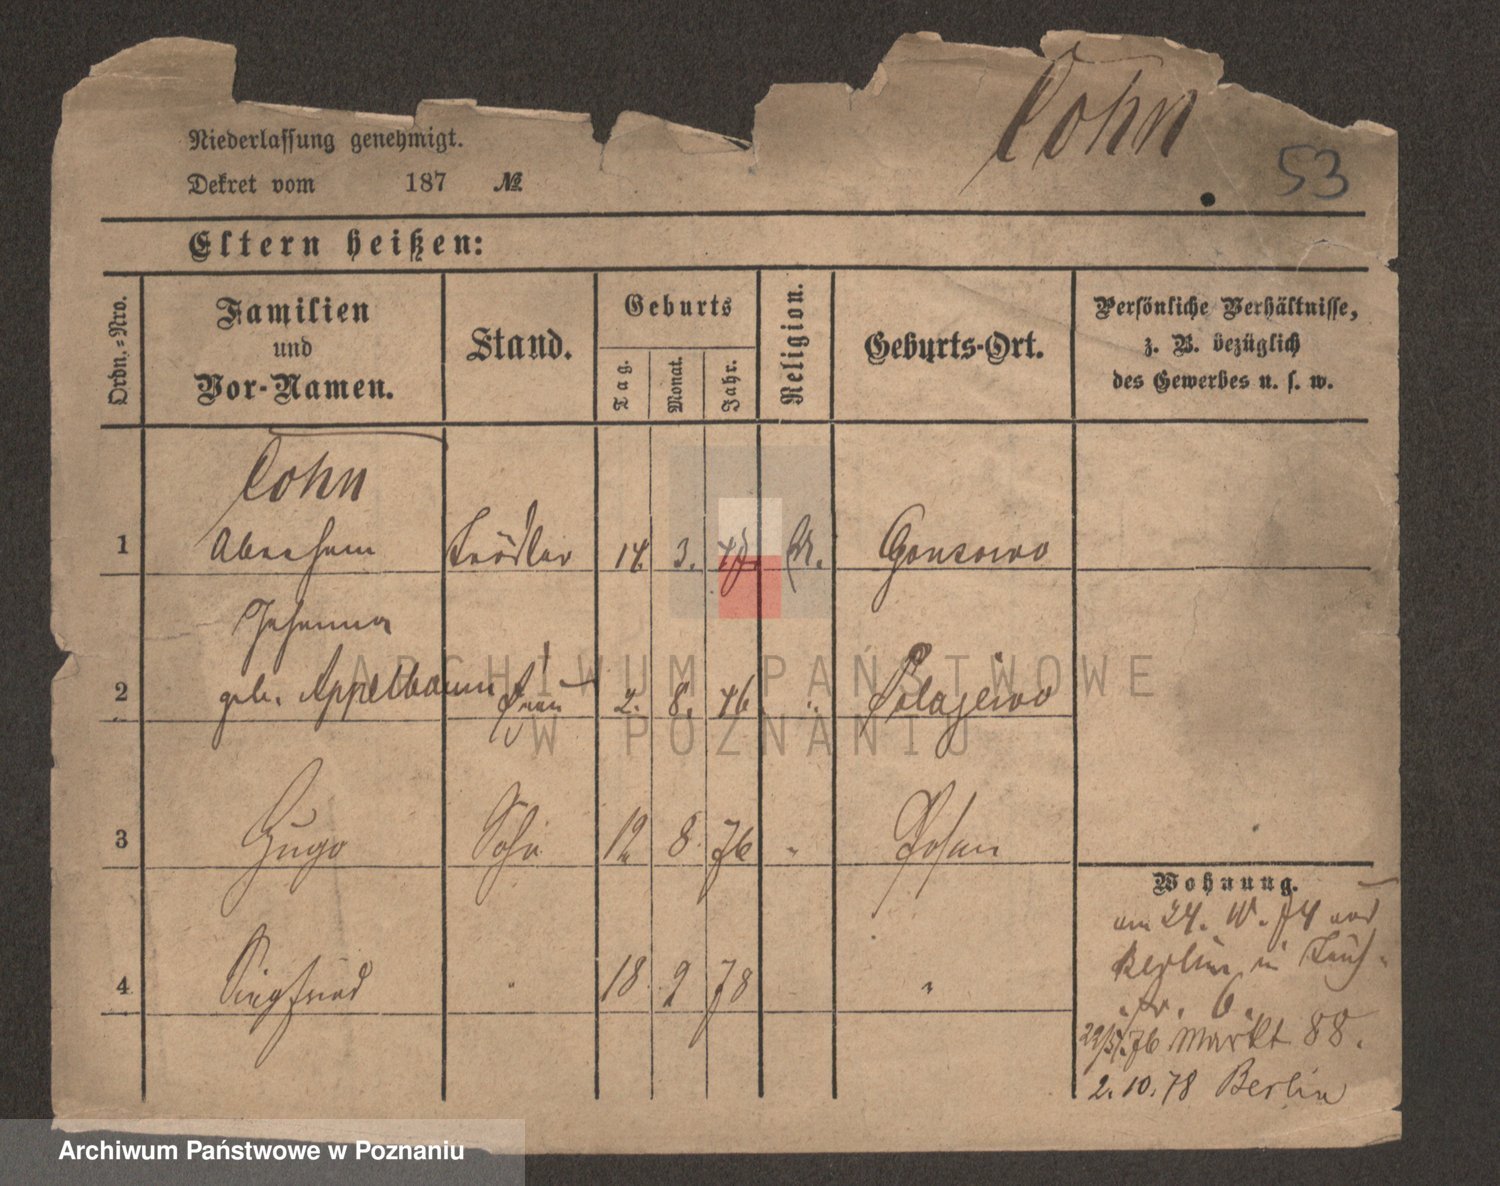 Cohn
53
Niederlassung genehmigt.
Dekret vom 187 №
Eltern heißen:
Ordn.=Nro.
Familien
und
Vor-Namen.
Stand.
Geburts
Tag.
Monat.
Jahr.
Religion.
Geburts-Ort.
Persönliche Verhältnisse,
z. B. bezüglich
des Gewerbes u. s. w.
Cohn
1 Abraham Trödler 14. 3.
Johanna
2 geb. Appelbaum Frau 2. 8. 46 " Polajewo
3 Hugo Sohn 12 8 76 " Posen
4 Siegfried " 18 9 78 "
Wohnung.
am 24. 74
Berlin in
6.
76 Markt 88.
2. 10. 78 Berlin
ARCHIWUM PAŃSTWOWE
W POZNANIU
Archiwum Państwowe w Poznaniu